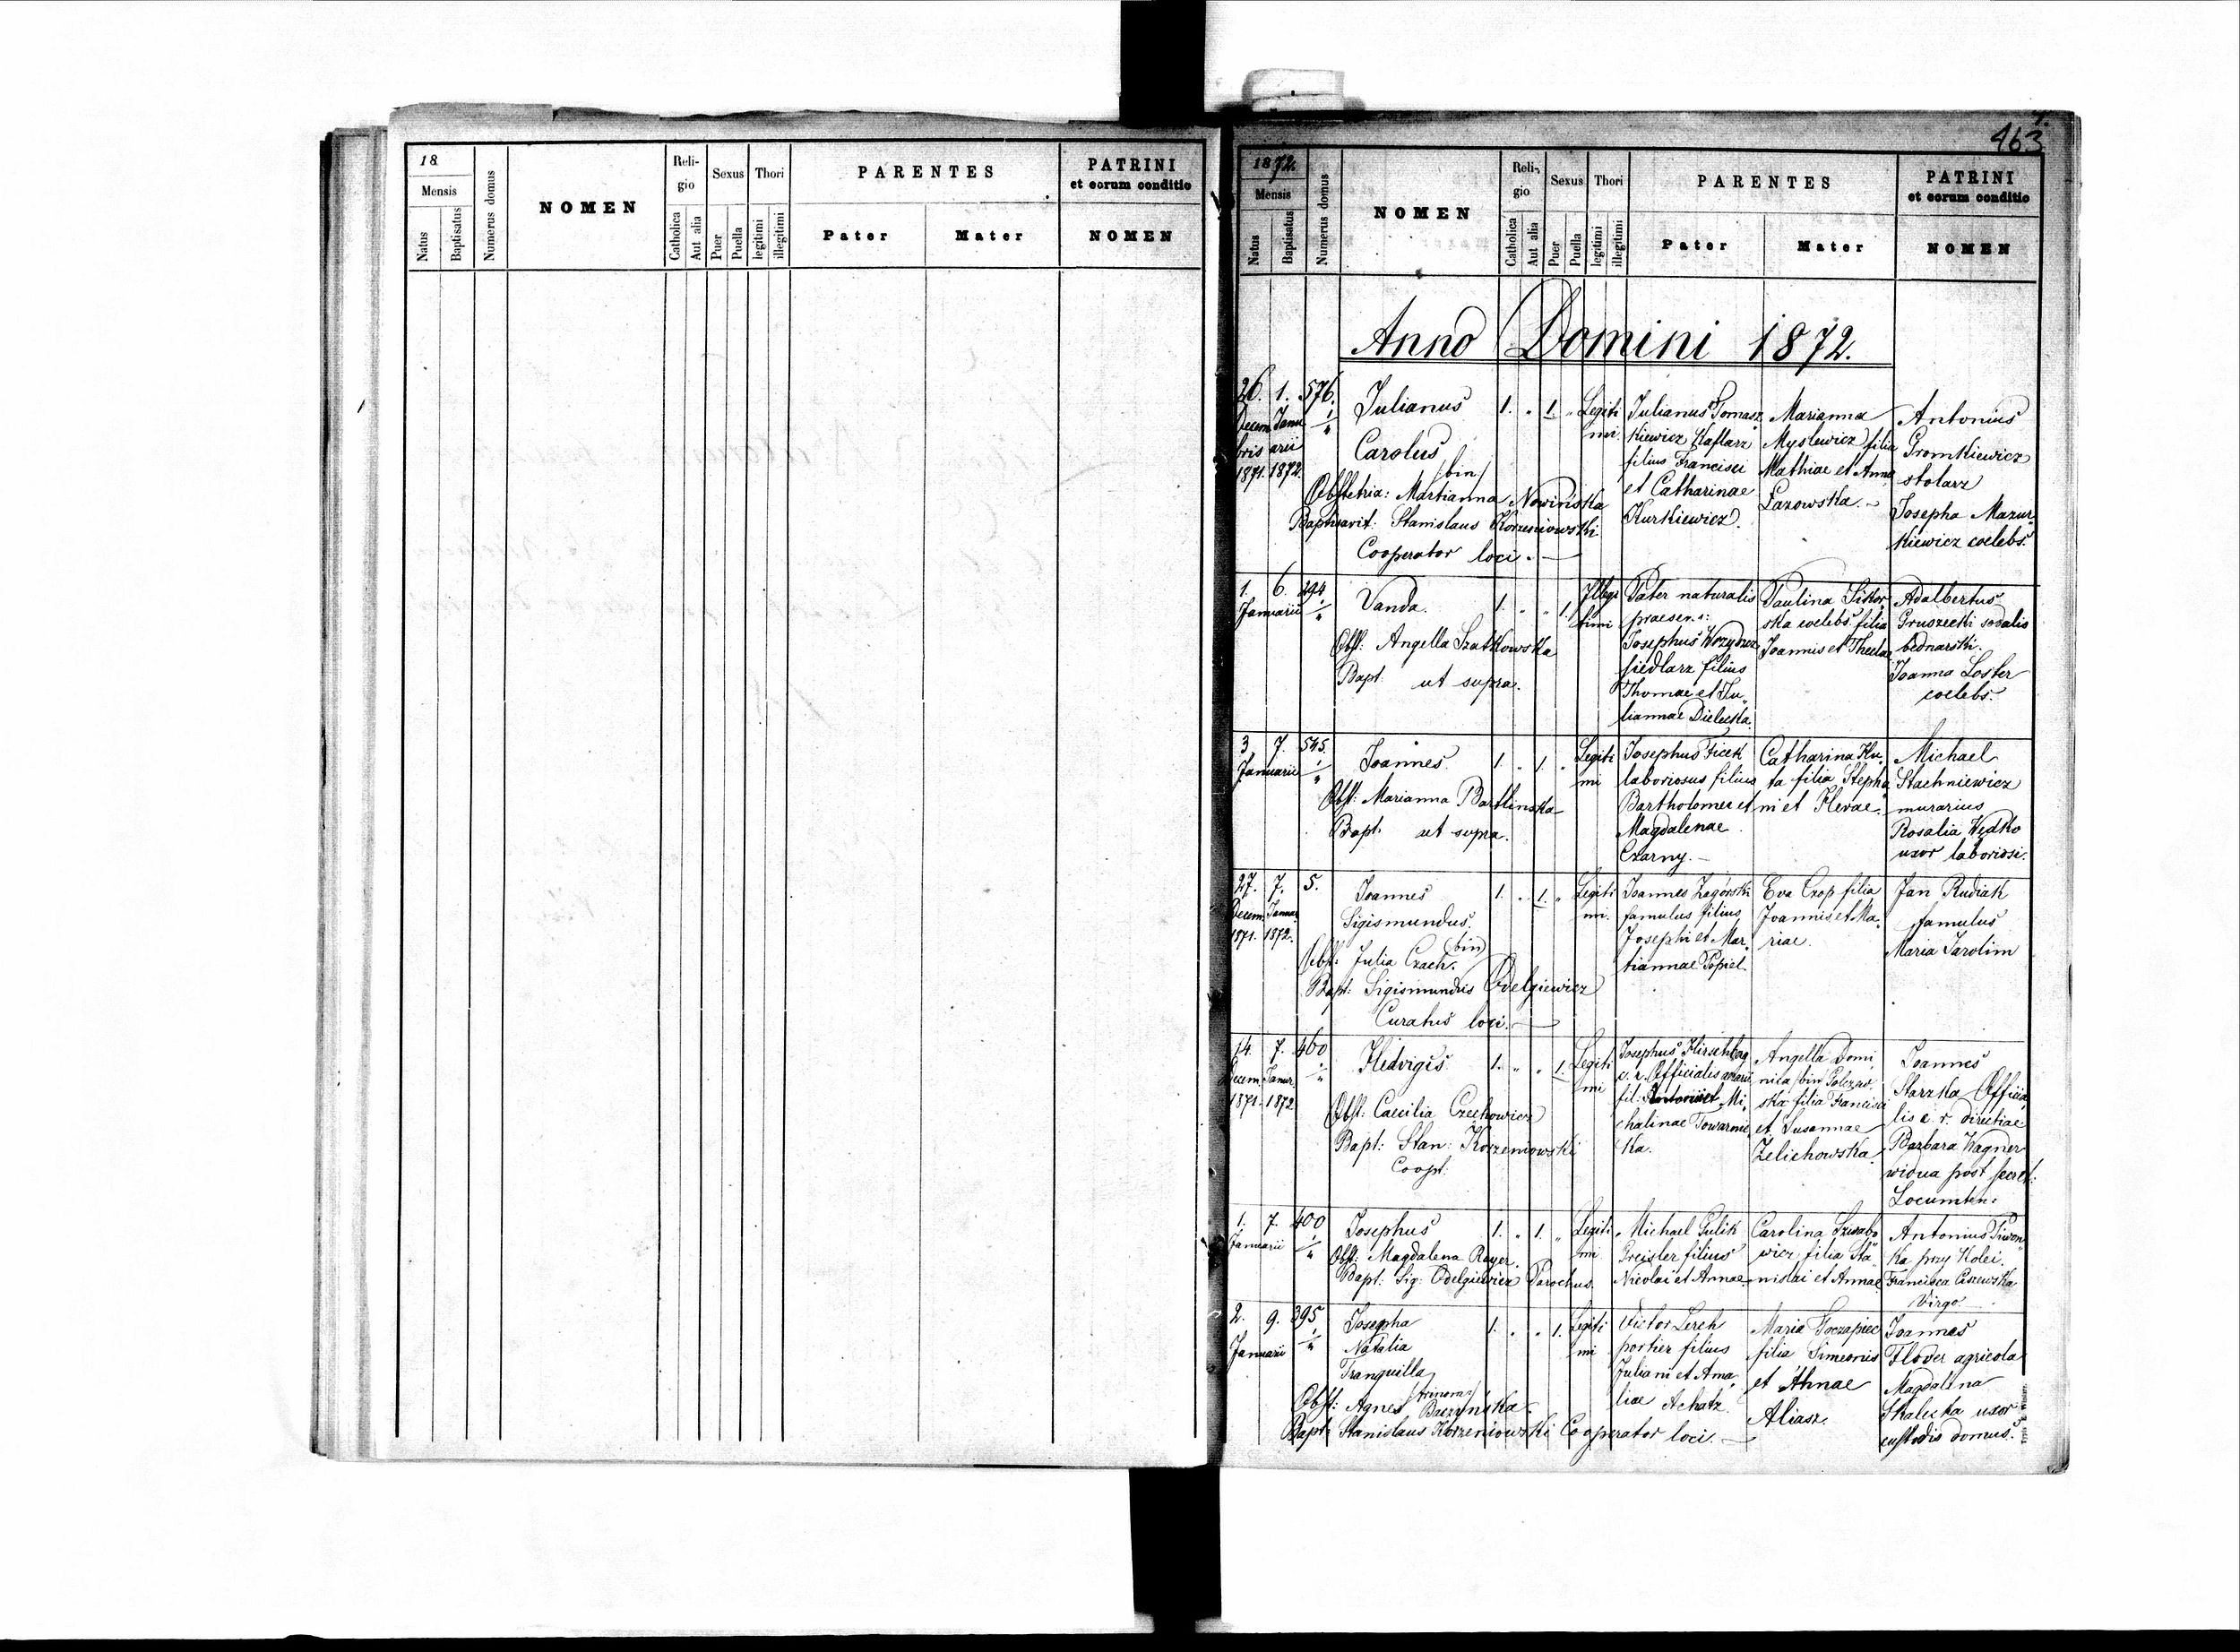 18
Mensis
Natus
Baptisatus
Numerus domus
NOMEN
Religio
Catholica
Aut alia
Sexus
Puer
Puella
Thori
legitimi
illegitimi
PARENTES
Pater
Mater
PATRINI
et eorum conditio
NOMEN
463
1872.
Mensis
Natus
Baptisatus
Numerus domus
NOMEN
Religio
Catholica
Aut alia
Sexus
Puer
Puella
Thori
legitimi
illegitimi
PARENTES
Pater
Mater
PATRINI
et eorum conditio
NOMEN
Anno Domini 1872.
26. 1. 576.
Decem Janu
bris arii
1871. 1872.
Julianus
Carolus
/bin/
Obstetrix: Martianna Nowińska
Baptisavit: Stanislaus Korzeniowski
Cooperator loci.
1. 1.
Legiti
mi.
Julianus Tomasz
kiewicz Kaflarz
filius Francisci
et Catharinae
Kurkiewicz.
Marianna
Myslewicz filia
Mathiae et Anna
Lazowska.
Antonius
Gromkiewicz
stolarz
Josepha Mazur
kiewicz coelebs.
1. 6. 494
Januarii
Vanda.
Obst: Angella Szatkowska
Bapt: ut supra.
1. 1.
Illegi
timi
Pater naturalis
praesens:
Josephus
siedlarz filius
Thomae et Ju
liannae
Paulina Sikor
ska coelebs filia
Joannis et Theclae
Adalbertus
Gruszecki sodalis
bednarski.
Joanna Loster
coelebs.
3. 7. 545.
Januarii
Joannes
Obst: Marianna Bartlinska
Bapt. ut supra.
1. 1.
Legiti
mi
Josephus Ficek
laboriosus filius
Bartholomei et
Magdalenae
Czarny.
Catharina Hu
ta filia Stepha
ni et Hevae.
Michael
Stachniewicz
murarius
Rosalia Wędko
uxor laboriosi.
27. 7. 5.
Decem Januar
1871. 1872.
Joannes
Sigismundus
/bin/
Obst: Julia Czach.
Bapt: Sigismundus Odelgiewicz
Curatus loci.
1. 1.
Legiti
mi.
Joannes Zagórski
famulus filius
Josephi et Mar
tiannae Popiel
Eva Czop filia
Joannis et Ma
riae.
Jan Rudiak
famulus
Maria Jarolim
14. 7. 460
Decem Januar
1871. 1872
Hedvigis
Obst: Caecilia Czechowicz
Bapt: Stan: Korzeniowski
Coopt.
1. 1.
Legiti
mi
Josephus
c. r. Officialis
fil: Antonii et Mi
chalinae Towarnic
ka.
Angella Domi
nica /bin
ska filia Francisci
et Susannae
Zelichowska
Joannes
Starzka Officia
lis c. r. directiae
Barbara Wagner
widua post secret:
Locumten:
1. 7. 400
Januarii
Josephus
Obst: Magdalena Reyer.
Bapt: Sig: Odelgiewicz Parochus.
1. 1.
Legiti
mi
Michael Gulik
Greisler filius
Nicolai et Annae
Carolina
wicz filia Sta
nislai et Annae
Antonius Piwon
ka przy Kolei
Francisca Ciszewska
Virgo.
2. 9. 395
Januarii
Josepha
Natalia
Tranquilla
/trinoma/
Obst: Agnes Baczynska.
Bapt: Stanislaus Korzeniowski Cooperator loci.
1. 1.
Legiti
mi
Victor Lerch
portier filius
Juliani et Ama
liae Achatz
Maria Poczapiec
filia Simeonis
et Annae
Aliasz.
Joannes
Floder agricola
Magdalena
Skalecka uxor
custodis domus.